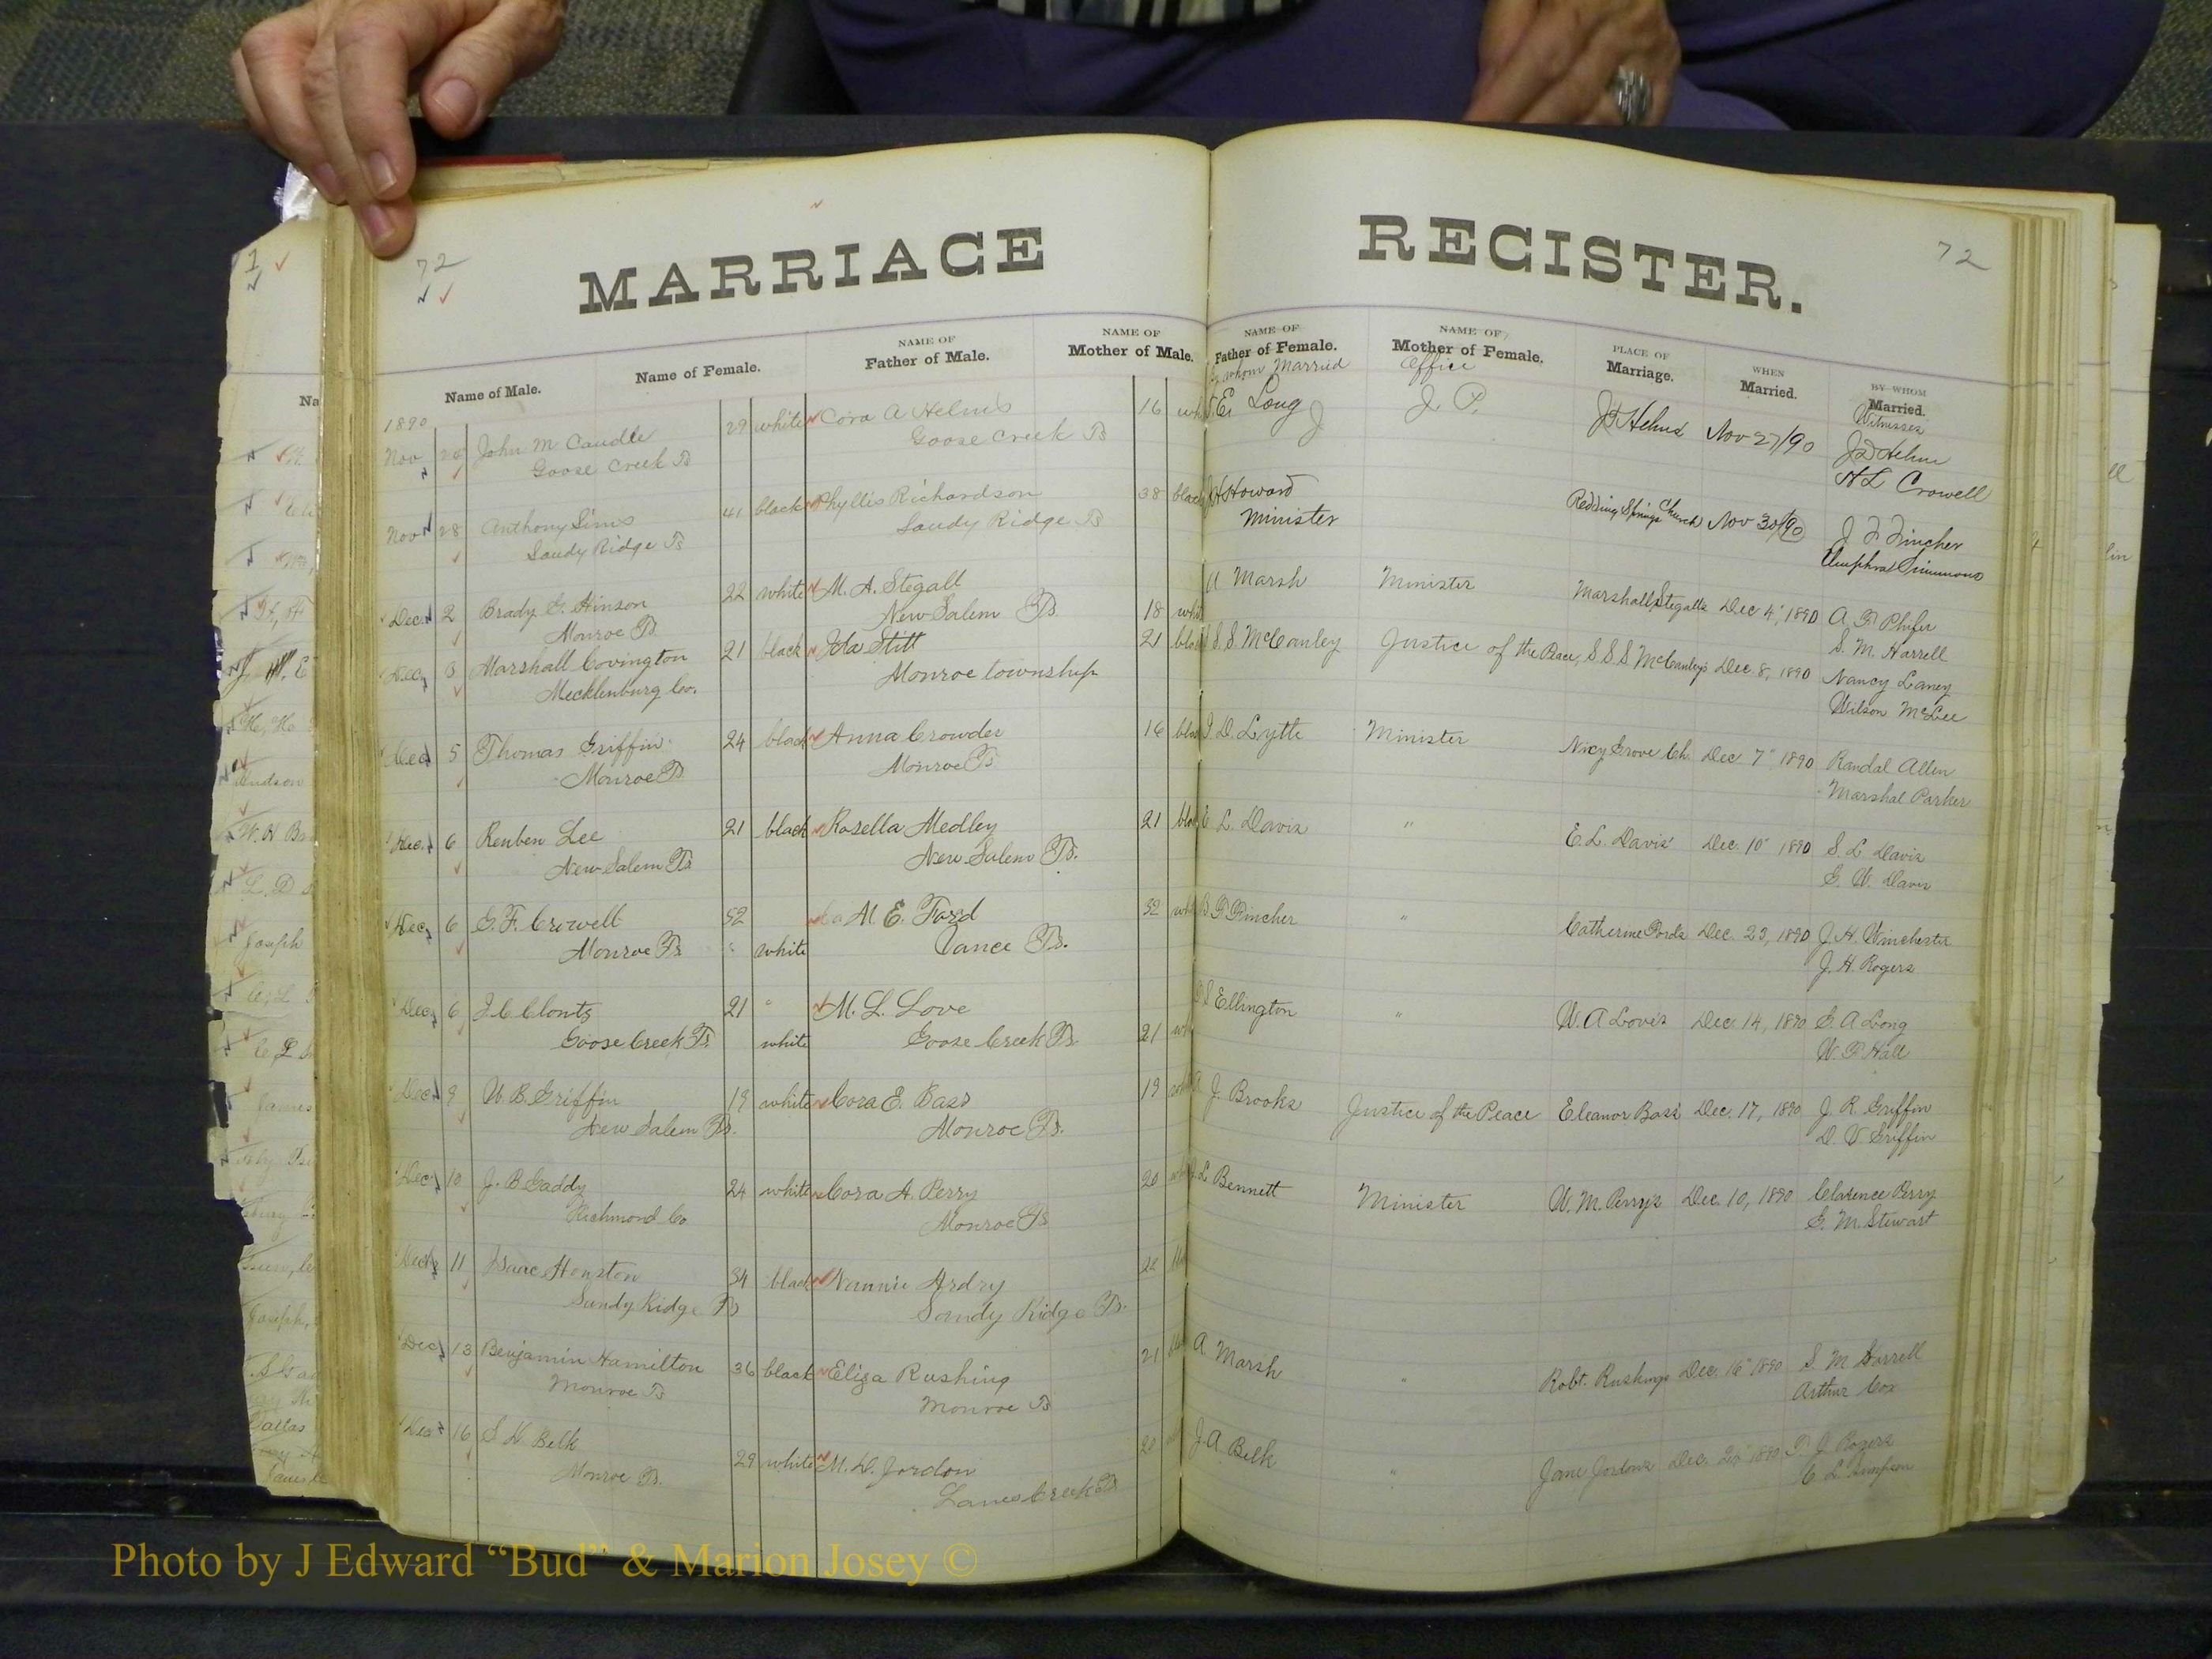 72
MARRIAGE REGISTER.
72
Name of Male. Name of Female. NAME OF Father of Male. NAME OF Mother of Male. NAME OF Father of Female. NAME OF Mother of Female. PLACE OF Marriage. WHEN Married. BY WHOM Married.
By whom Married Office Witnesses
1890
Nov 26 John M Caudle 29 white Cora A Helms 16 J. E. Long J. P. Nov 27/90 J D Helms
Goose Creek Ts Goose Creek Ts H L Crowell
Nov 28 Anthony Sims 41 black Phyllis Richardson 38 black Howard Redding Springs Church Nov 30/90 J F Fincher
Sandy Ridge Ts Sandy Ridge Ts Minister Simmons
Dec. 2 Brady G. Hinson 22 white M. A. Stegall 18 A Marsh Minister Marshall Stegalls Dec 4, 1890 A. F. Phifer
Monroe Ts. New Salem Ts. S. M. Harrell
Dec. 3 Marshall Covington 21 black Ida Stitt 21 S. S. S. McCauley Justice of the Peace, S S S McCauley's Dec. 8, 1890 Nancy Laney
Mecklenburg Co. Monroe township Wilson McLee
Dec 5 Thomas Griffin 24 black Anna Crowder 16 D. Lytle Minister Nicy Grove Ch. Dec 7" 1890 Randal Allen
Monroe Ts Monroe Ts. Marshal Parker
Dec. 6 Reuben Lee 21 black Rosella Medley 21 E L. Davis " E. L. Davis' Dec. 10" 1890 S. L Davis
New Salem Ts. New Salem Ts. G. W. Davis
Dec. 6 G. F. Crowell 52 M. E. Ford 32 Fincher " Catherine Fords Dec. 23, 1890 J. H. Winchester
Monroe Ts. " white Vance Ts. J. H. Rogers
Dec. 6 J. C. Clontz 21 " M. L. Love S Ellington " W. A Love's Dec. 14, 1890 G. A Long
Goose Creek Ts. white Goose Creek Ts. 21 W. F. Hall
Dec. 9 W. B. Griffin 19 white Cora E. Bass 19 J. Brooks Justice of the Peace Eleanor Bass' Dec. 17, 1890 J. R. Griffin
New Salem Ts. Monroe Ts. D. V. Griffin
Dec. 10 J. B Gaddy 24 white Cora A. Perry 20 L Bennett Minister W. M. Perry's Dec. 10, 1890 Clarence Perry
Richmond Co Monroe Ts G. M. Stewart
Dec. 11 Isaac Houston 34 black Nannie Ardry
Sandy Ridge Ts Sandy Ridge Ts.
Dec. 13 Benjamin Hamilton 36 black Eliza Rushing 21 A. Marsh " Robt. Rushings Dec. 16" 1890 S. M Harrell
Monroe Ts Monroe Ts Arthur Cox
Dec 16 S H Belk 29 white M. D. Jordon J. A. Belk " Jane Jordons Dec. 1890 J Rogers
Monroe Ts. Lanes Creek Ts C. L. Simpson
Photo by J Edward “Bud” & Marion Josey ©